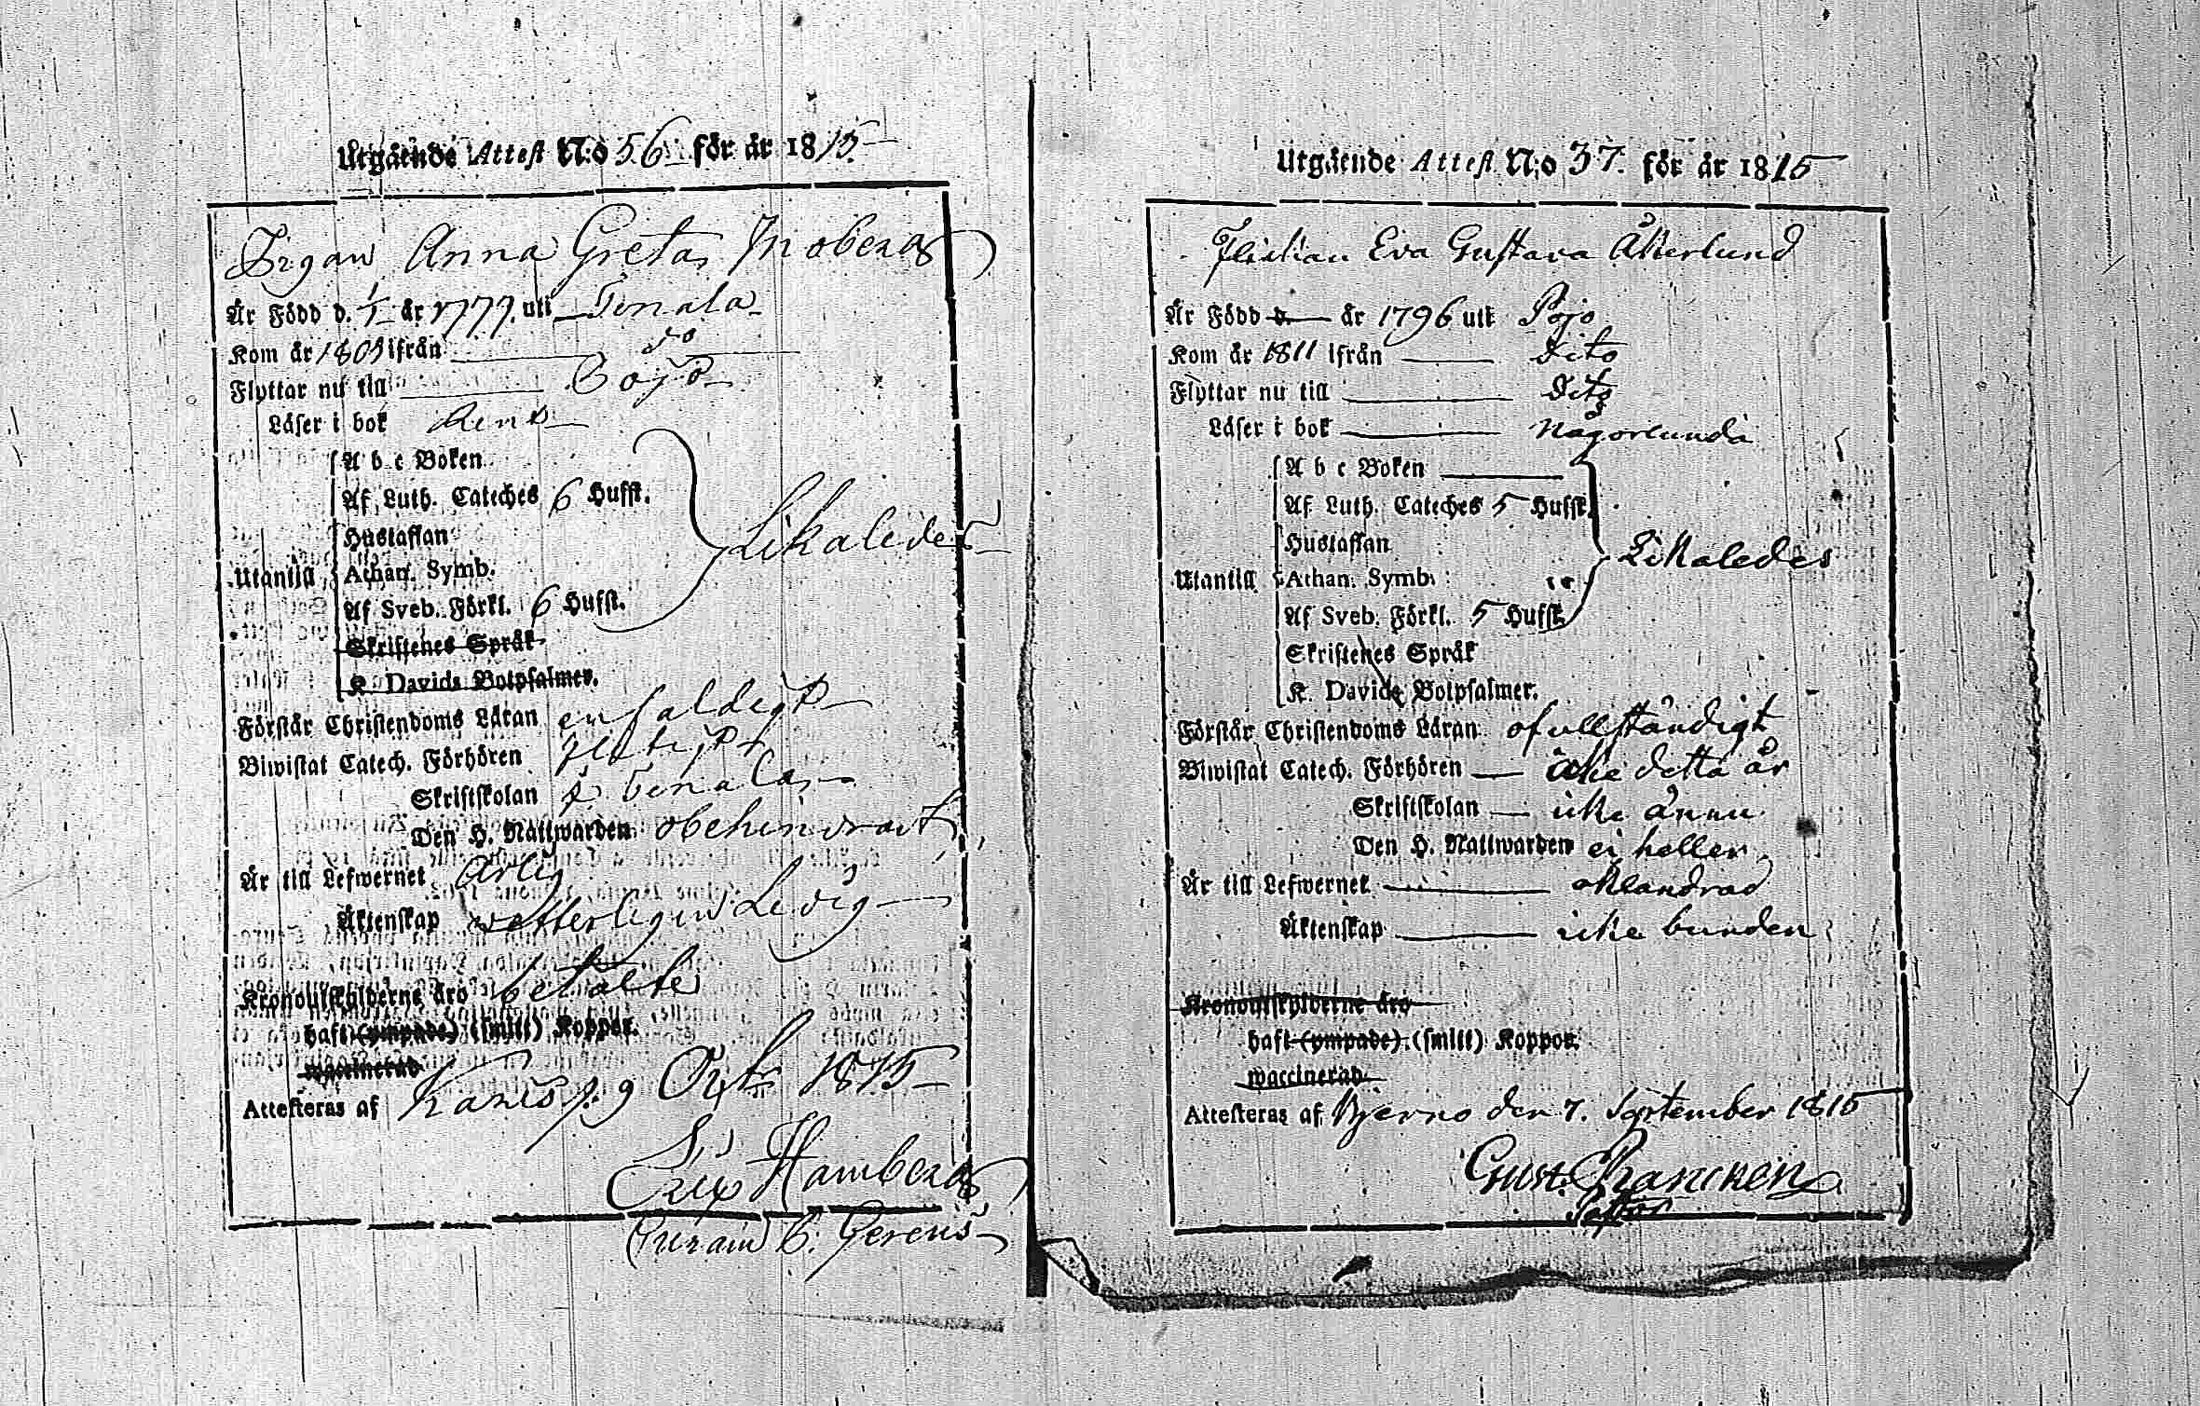 Utgående Attest N:o 56 för år 1815.
Anna Greta
Är Född d. 1/1 år 1777. uti Tenala
Kom år 1805 ifrån do
Flyttar nu till Pojo
Läser i bok rent
A b c Boken
Af Luth. Cateches 6 Hufst.
Hustaflan
Likaledes
Utantill Athan. Symb.
Af Sveb. Förkl. 6 Hufst.
Skriftenes Språk
K. Davids Botpsalmer.
Förstår Christendoms Läran enfaldigt
Biwistat Catech. Förhören flitigt
Skriftskolan i Tenala
Den H. Nattwarden obehindrat
Är till Lefwernet ärlig
Äktenskap wetterligen Ledig
Kronoutskylderne äro betalte
haft (ympade) (smitt) Koppor.
waccinerad
Attesteras af Karis p. 9 Oct. 1815
Hamberg
Utgående Attest N:o 37. för år 1815
Flickan Eva Gustava Åkerlund
Är Född d. år 1796 uti Pojo
Kom år 1811 ifrån Dito
Flyttar nu till Dito
Läser i bok någorlunda
A b c Boken
Af Luth. Cateches 5 Hufst.
Hustaflan
Likaledes
Utantill Athan. Symb.
Af Sveb. Förkl. 5 Hufst.
Skriftenes Språk
K. Davids Botpsalmer.
Förstår Christendoms Läran ofullständigt
Biwistat Catech. Förhören icke detta år
Skriftskolan icke ännu
Den H. Nattwarden ei heller
Är till Lefwernet oklandrad
Äktenskap icke bunden
Kronoutskylderne äro
haft (ympade) (smitt) Koppor.
waccinerad
Attesteras af Bjerno den 7. September 1815
Gust.
Pastor